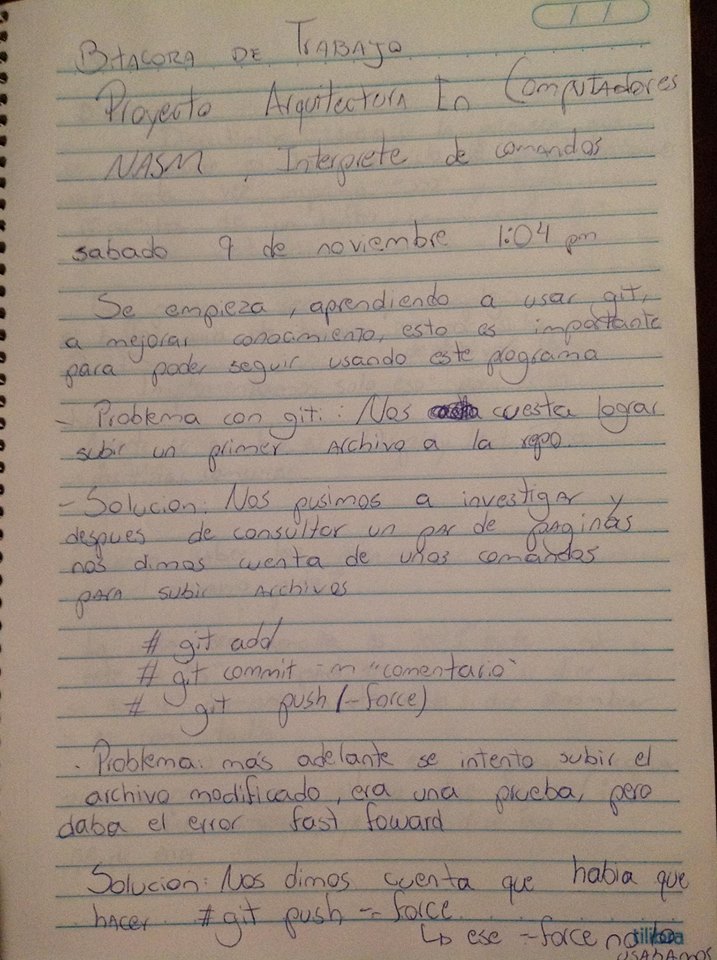 BITACORA DE TRABAJO
Proyecto Arquitectura In Computadores
NASM, Interprete de comandos
sabado 9 de noviembre 1:04 pm
Se empieza, aprendiendo a usar git,
a mejorar conocimiento, esto es importante
para poder seguir usando este programa
- Problema con git: Nos cuesta lograr
subir un primer archivo a la repo.
- Solucion: Nos pusimos a investigar y
despues de consultar un par de paginas
nos dimos cuenta de unos comandos
para subir archivos
# git add
# git commit -m "comentario"
# git push (-force)
- Problema: más adelante se intento subir el
archivo modificado, era una prueba, pero
daba el error fast foward
Solucion: Nos dimos cuenta que habia que
hacer #git push --force
↳ ese --force no lo
usabamos
tilibra